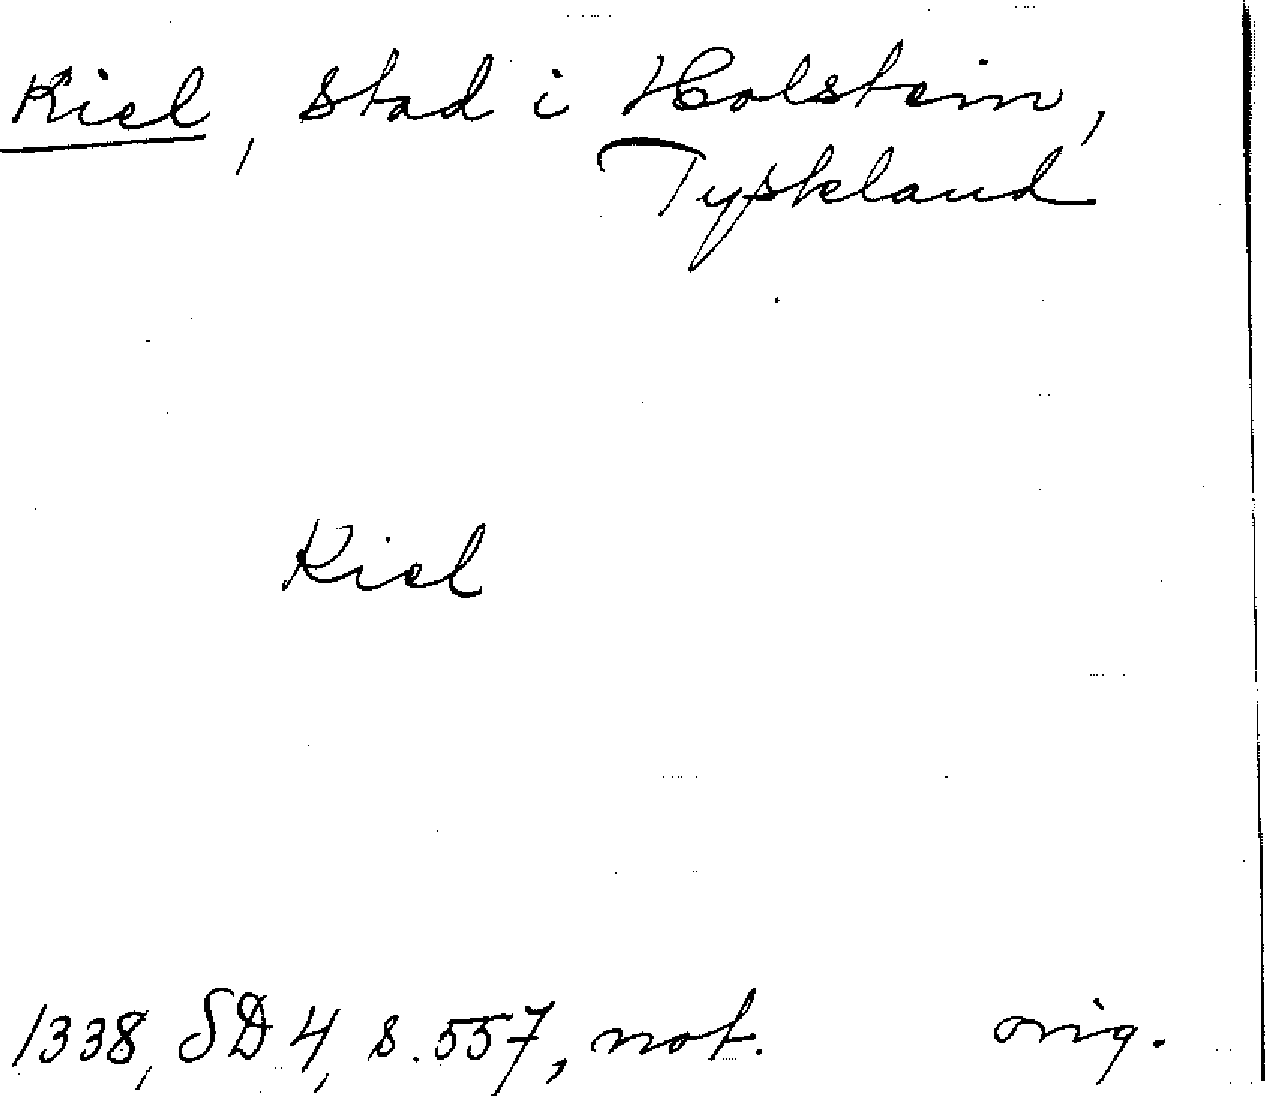 Kiel, stad i Holstein,
Tyskland
Kiel
1338, SD 4, s. 557, not. orig.